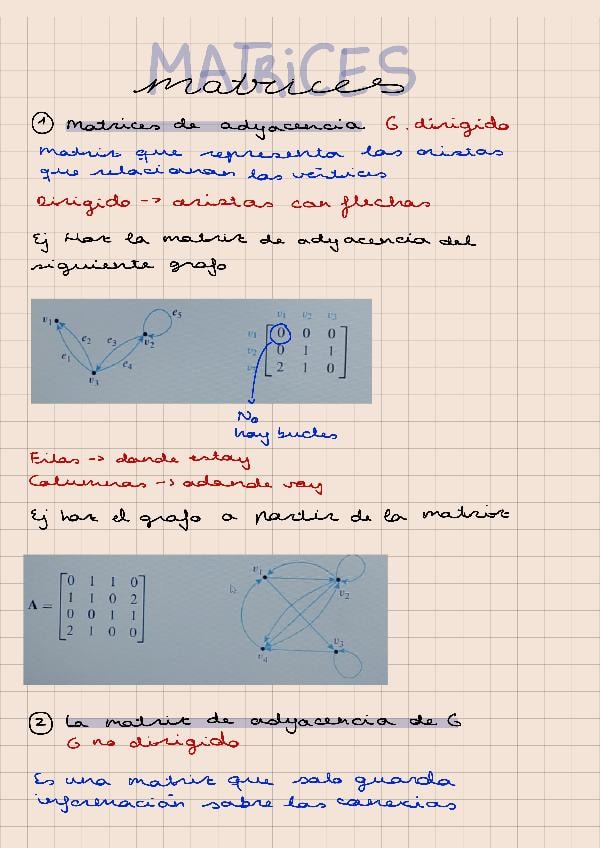 MATRiCES
matrices
① Matrices de adyacencia G. dirigido
Matriz que representa las aristas
que relacionan las vértices
Dirigido -> aristas con flechas
Ej Haz la matriz de adyacencia del
siguiente grafo
v1 e2 e1 e3 v2 e5 e4 v3
v1 v2 v3
v1 0 0 0
v2 0 1 1
2 1 0
No
hay bucles
Filas -> donde estoy
Columnas -> adonde voy
Ej haz el grafo a partir de la matriz
A =
0 1 1 0
1 1 0 2
0 0 1 1
2 1 0 0
v1 v2 v3 v4
② La matriz de adyacencia de G
G no dirigido
Es una matriz que solo guarda
información sobre las conexias